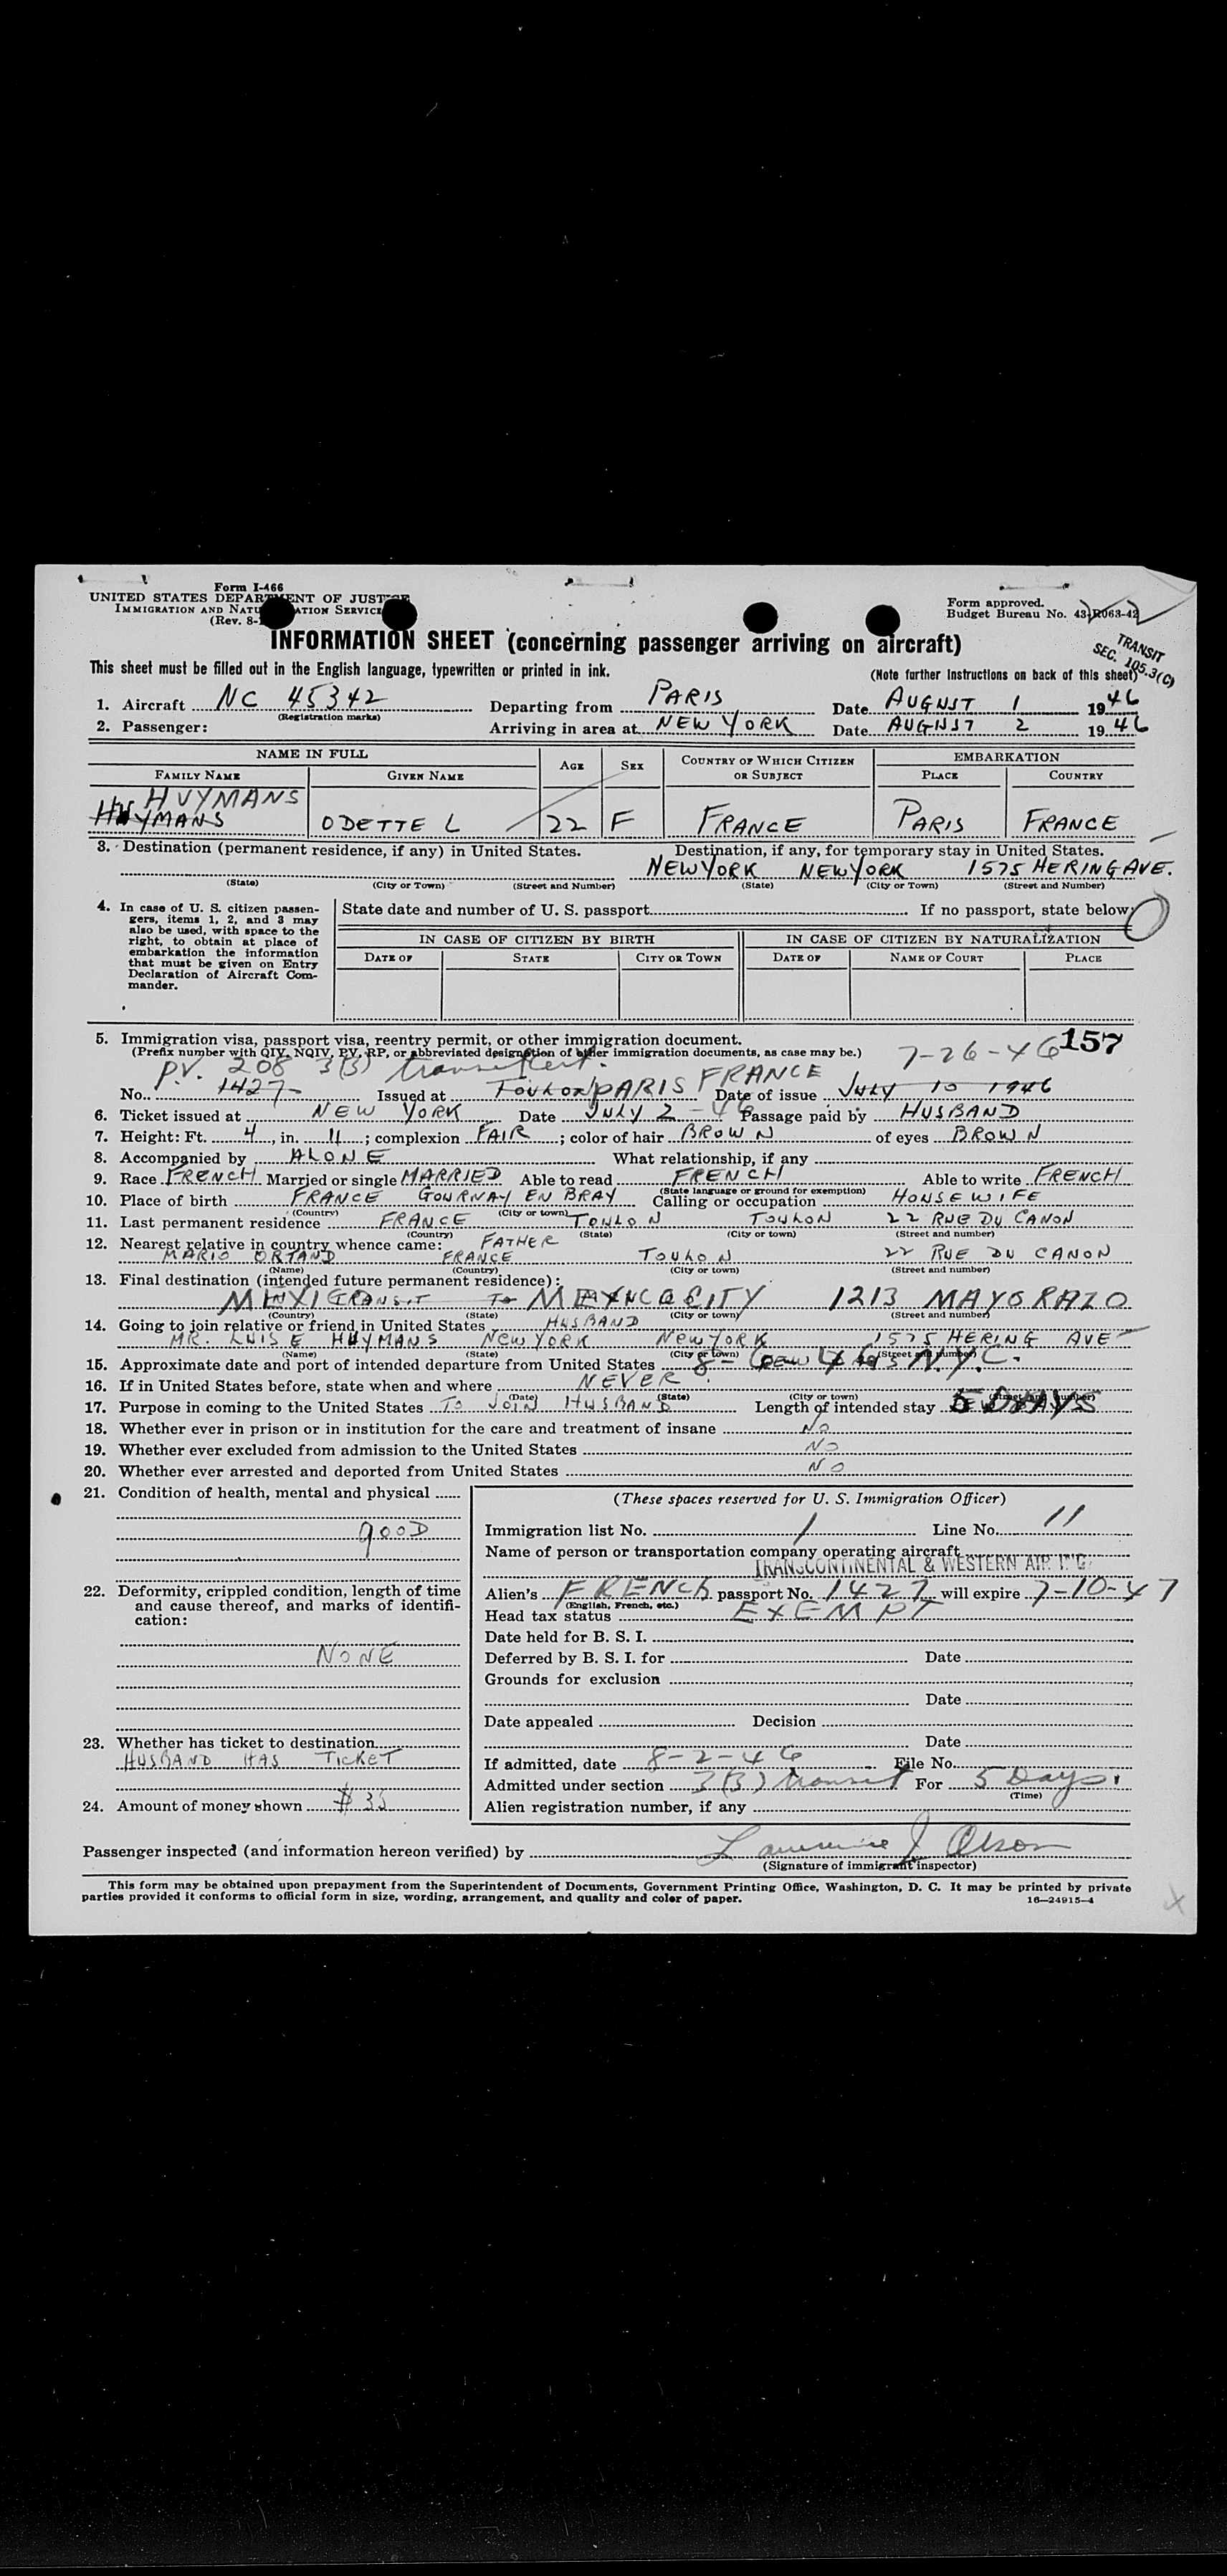 Form I-466
UNITED STATES DEPARTMENT OF JUSTICE
IMMIGRATION AND NATURALIZATION SERVICE
(Rev. 8-
Form approved.
Budget Bureau No. 43-R063-42
INFORMATION SHEET (concerning passenger arriving on aircraft)
TRANSIT
SEC. 105.3(C)
This sheet must be filled out in the English language, typewritten or printed in ink. (Note further instructions on back of this sheet)
1. Aircraft NC 45342 Departing from PARIS Date AUGUST 1 1946
(Registration marks)
2. Passenger: Arriving in area at NEW YORK Date AUGUST 2 1946
NAME IN FULL AGE SEX COUNTRY OF WHICH CITIZEN OR SUBJECT EMBARKATION
FAMILY NAME GIVEN NAME PLACE COUNTRY
HUYMANS
HUYMANS ODETTE L 22 F FRANCE PARIS FRANCE
3. Destination (permanent residence, if any) in United States. Destination, if any, for temporary stay in United States.
NEW YORK NEW YORK 1575 HERING AVE.
(State) (City or Town) (Street and Number) (State) (City or Town) (Street and Number)
4. In case of U. S. citizen passengers, items 1, 2, and 3 may also be used, with space to the right, to obtain at place of embarkation the information that must be given on Entry Declaration of Aircraft Commander.
State date and number of U. S. passport If no passport, state below:
IN CASE OF CITIZEN BY BIRTH IN CASE OF CITIZEN BY NATURALIZATION
DATE OF STATE CITY OR TOWN DATE OF NAME OF COURT PLACE
5. Immigration visa, passport visa, reentry permit, or other immigration document. 157
(Prefix number with QIV, NQIV, PV, RP, or abbreviated designation of other immigration documents, as case may be.) 7-26-46
PV. 208 3(3) PARIS FRANCE
No. 1427 Issued at TOULON Date of issue JULY 10 1946
6. Ticket issued at NEW YORK Date JULY 2-46 Passage paid by HUSBAND
7. Height: Ft. 4, in. 11; complexion FAIR; color of hair BROWN of eyes BROWN
8. Accompanied by ALONE What relationship, if any
9. Race FRENCH Married or single MARRIED Able to read FRENCH Able to write FRENCH
(State language or ground for exemption)
10. Place of birth FRANCE GOURNAY EN BRAY Calling or occupation HOUSEWIFE
(Country) (City or town)
11. Last permanent residence FRANCE TOULON TOULON 22 RUE DU CANON
(Country) (State) (City or town) (Street and number)
12. Nearest relative in country whence came: FATHER
MARIO ORTAND FRANCE TOULON 22 RUE DU CANON
(Name) (Country) (City or town) (Street and number)
13. Final destination (intended future permanent residence):
TRANSIT TO MEXICO CITY 1213 MAYORAZO
(Country) (State) (City or town) (Street and number)
14. Going to join relative or friend in United States HUSBAND
MR. LUIS E HUYMANS NEW YORK NEW YORK 1575 HERING AVE
(Name) (State) (City or town) (Street and number)
15. Approximate date and port of intended departure from United States 8- N.Y.C.
16. If in United States before, state when and where NEVER
(Date) (State) (City or town) (Street and number)
17. Purpose in coming to the United States TO JOIN HUSBAND Length of intended stay 5 DAYS
18. Whether ever in prison or in institution for the care and treatment of insane NO
19. Whether ever excluded from admission to the United States NO
20. Whether ever arrested and deported from United States NO
21. Condition of health, mental and physical
GOOD
22. Deformity, crippled condition, length of time and cause thereof, and marks of identification:
NONE
23. Whether has ticket to destination
HUSBAND HAS TICKET
24. Amount of money shown $35
(These spaces reserved for U. S. Immigration Officer)
Immigration list No. 1 Line No. 11
Name of person or transportation company operating aircraft
TRANSCONTINENTAL & WESTERN AIR INC.
Alien's FRENCH passport No. 1427 will expire 7-10-47
(English, French, etc.)
Head tax status EXEMPT
Date held for B. S. I.
Deferred by B. S. I. for Date
Grounds for exclusion
Date
Date appealed Decision
Date
If admitted, date 8-2-46 File No.
Admitted under section 3(3) transit For 5 Days.
(Time)
Alien registration number, if any
Passenger inspected (and information hereon verified) by Lawrence J Olson
(Signature of immigrant inspector)
This form may be obtained upon prepayment from the Superintendent of Documents, Government Printing Office, Washington, D. C. It may be printed by private
parties provided it conforms to official form in size, wording, arrangement, and quality and color of paper. 16—24915-4